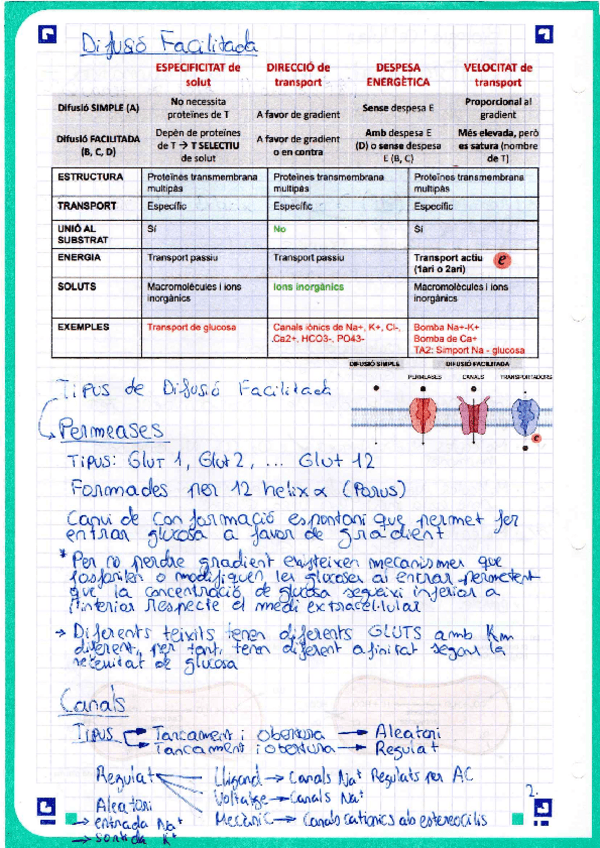 Difusió Facilitada
ESPECIFICITAT de solut DIRECCIÓ de transport DESPESA ENERGÈTICA VELOCITAT de transport
Difusió SIMPLE (A) No necessita proteïnes de T A favor de gradient Sense despesa E Proporcional al gradient
Difusió FACILITADA (B, C, D) Depèn de proteïnes de T → T SELECTIU de solut A favor de gradient o en contra Amb despesa E (D) o sense despesa E (B, C) Més elevada, però es satura (nombre de T)
ESTRUCTURA Proteïnes transmembrana multipàs Proteïnes transmembrana multipàs Proteïnes transmembrana multipàs
TRANSPORT Específic Específic Específic
UNIÓ AL SUBSTRAT Sí No Sí
ENERGIA Transport passiu Transport passiu Transport actiu (1ari o 2ari) e
SOLUTS Macromolècules i ions inorgànics Ions inorgànics Macromolècules i ions inorgànics
EXEMPLES Transport de glucosa Canals iònics de Na+, K+, Cl-, .Ca2+, HCO3-, PO43- Bomba Na+-K+ Bomba de Ca+ TA2: Simport Na - glucosa
DIFUSIÓ SIMPLE DIFUSIÓ FACILITADA
PERMEASES CANALS TRANSPORTADORS
e
Tipus de Difusió Facilitada
Permeases
Tipus: Glut 1, Glut 2, ... Glut 12
Formades per 12 helix α (Porus)
Canvi de conformació espontani que permet fer
entrar glucosa a favor de gradient
* Per no perdre gradient existeixen mecanismes que
fosforilen o modifiquen les glucoses al entrar permetent
que la concentració de glucosa segueixi inferior a
l'interior respecte el medi extracel·lular
→ Diferents teixits tenen diferents GLUTS amb Km
diferent, per tant, tenen diferent afinitat segons la
necessitat de glucosa
Canals
Tipus → Tancament i obertura → Aleatori
→ Tancament i obertura → Regulat
Regulat Lligand → Canals Na+ Regulats per AC
Voltatge → Canals Na+
Mecànic → Canals cationics als estereocilis
Aleatori
→ entrada Na+
→ sortida K+
2.